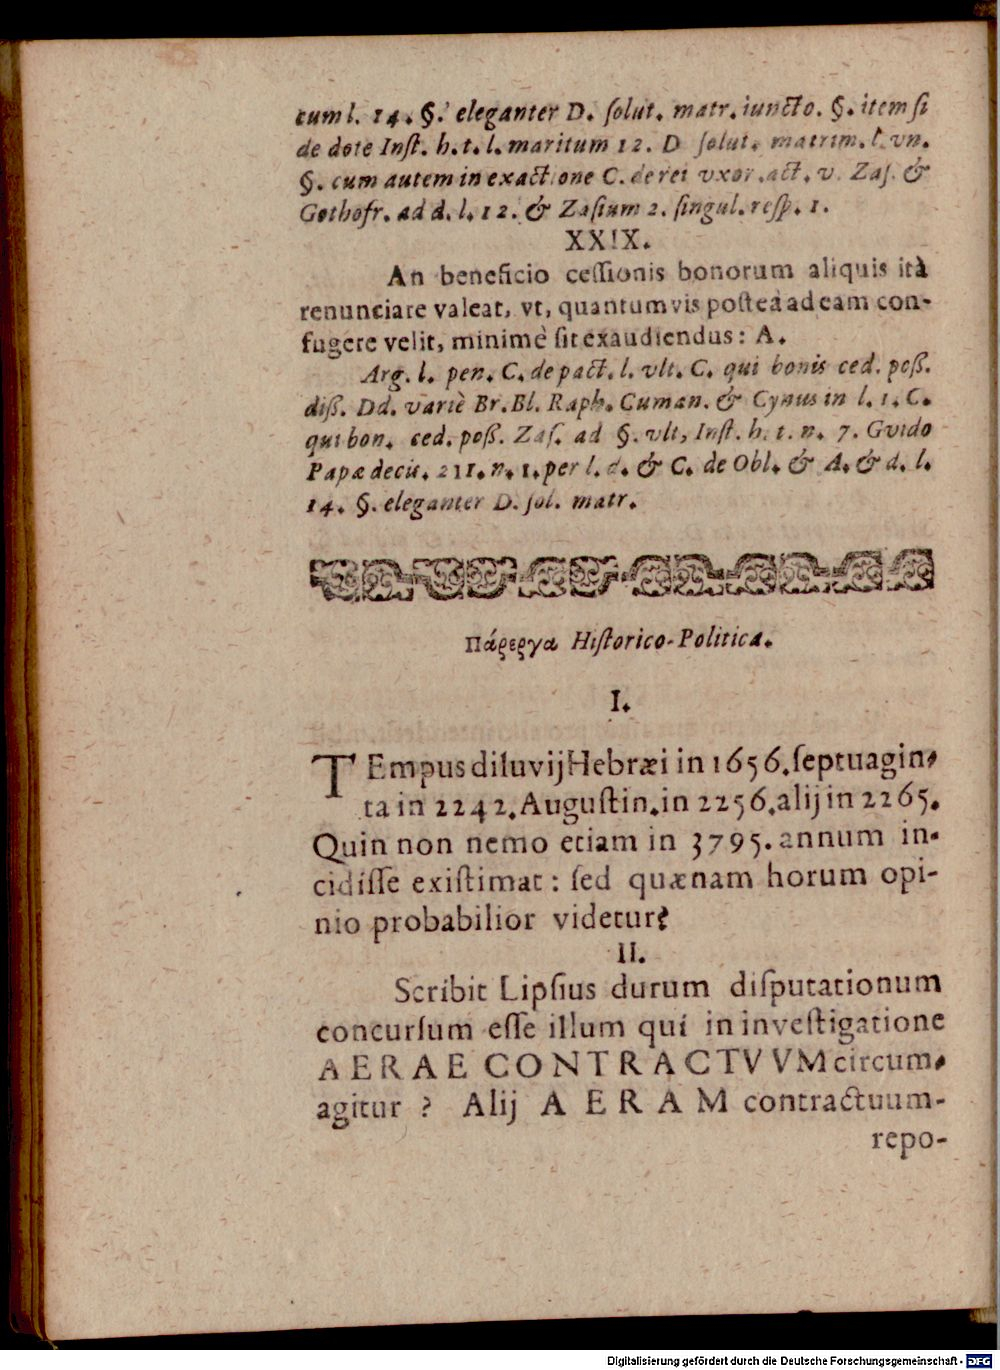 cum l. 14. §. eleganter D. ſolut. matr. iuncto. §. item ſi
de dote Inſt. h. t. l. maritum 12. D ſolut. matrim. l. vn.
§. cum autem in exactione C. de rei vxor. act. v. Zaſ. &
Gothofr. ad d. l. 12. & Zaſium 2. ſingul. reſp. 1.
XXIX.
An beneficio ceſſionis bonorum aliquis ità
renunciare valeat, vt, quantumvis poſteà ad eam con-
fugere velit, minimè ſit exaudiendus: A.
Arg. l. pen. C. de pact. l. vlt. C. qui bonis ced. poß.
diß. Dd. variè Br. Bl. Raph. Cuman. & Cynus in l. 1. C.
qui bon. ced. poß. Zaſ. ad §. vlt, Inſt. h. t. n. 7. Gvido
Papæ decis. 211. n. 1. per l. d. & C. de Obl. & A. & d. l.
14. §. eleganter D. ſol. matr.
Πάρεργα Hiſtorico-Politica.
I.
TEmpus diluvij Hebræi in 1656. ſeptuagin-
ta in 2242. Auguſtin. in 2256. alij in 2265.
Quin non nemo etiam in 3795. annum in-
cidiſſe exiſtimat: ſed quænam horum opi-
nio probabilior videtur?
II.
Scribit Lipſius durum diſputationum
concurſum eſſe illum qui in inveſtigatione
AERAE CONTRACTVVM circum-
agitur ? Alij AERAM contractuum-
repo-
Digitalisierung gefördert durch die Deutsche Forschungsgemeinschaft - DFG